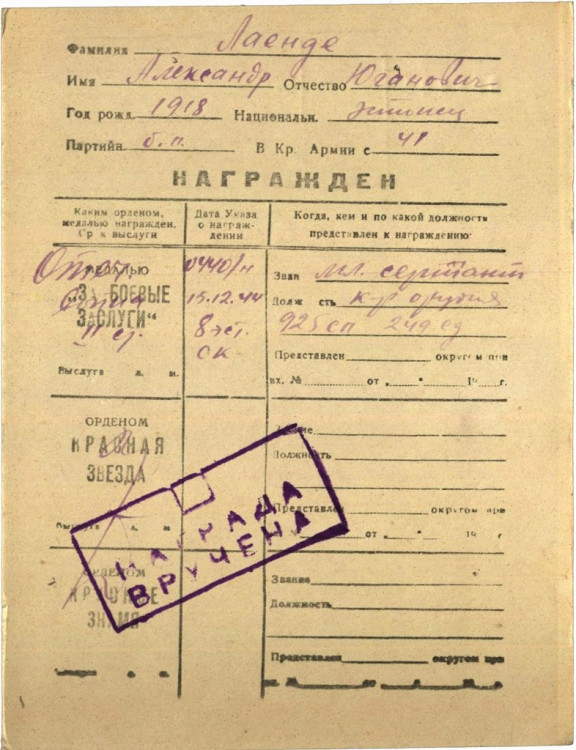 Фамилия Лаенде
Имя Александр Отчество Юганович
Год рожд. 1918 Национальн. эстонец
Партийн. б.п. В Кр. Армии с 41
НАГРАЖДЕН
Каким орденом, медалью награжден. Ср к выслуги
Дата Указа о награждении
Когда, кем и по какой должности представлен к награждению:
МЕДАЛЬЮ
„ЗА БОЕВЫЕ
ЗАСЛУГИ“
Отеч.
II ст.
0440/н
15.12.44
8 эст.
ск
Зван мл. сержант
Долж сть к-р орудия
925сп 249 сд
Представлен округом при
вх. № от „ “ 19 г.
Выслуга л. м.
ОРДЕНОМ
КРАСНАЯ
ЗВЕЗДА
Звание
Должность
Представлен округом при
от „ “ 19 г.
Выслуга л. м.
НАГРАДА
ВРУЧЕНА
ОРДЕНОМ
КРАСНОЕ
ЗНАМЯ
Звание
Должность
Представлен округом при
вх. № от